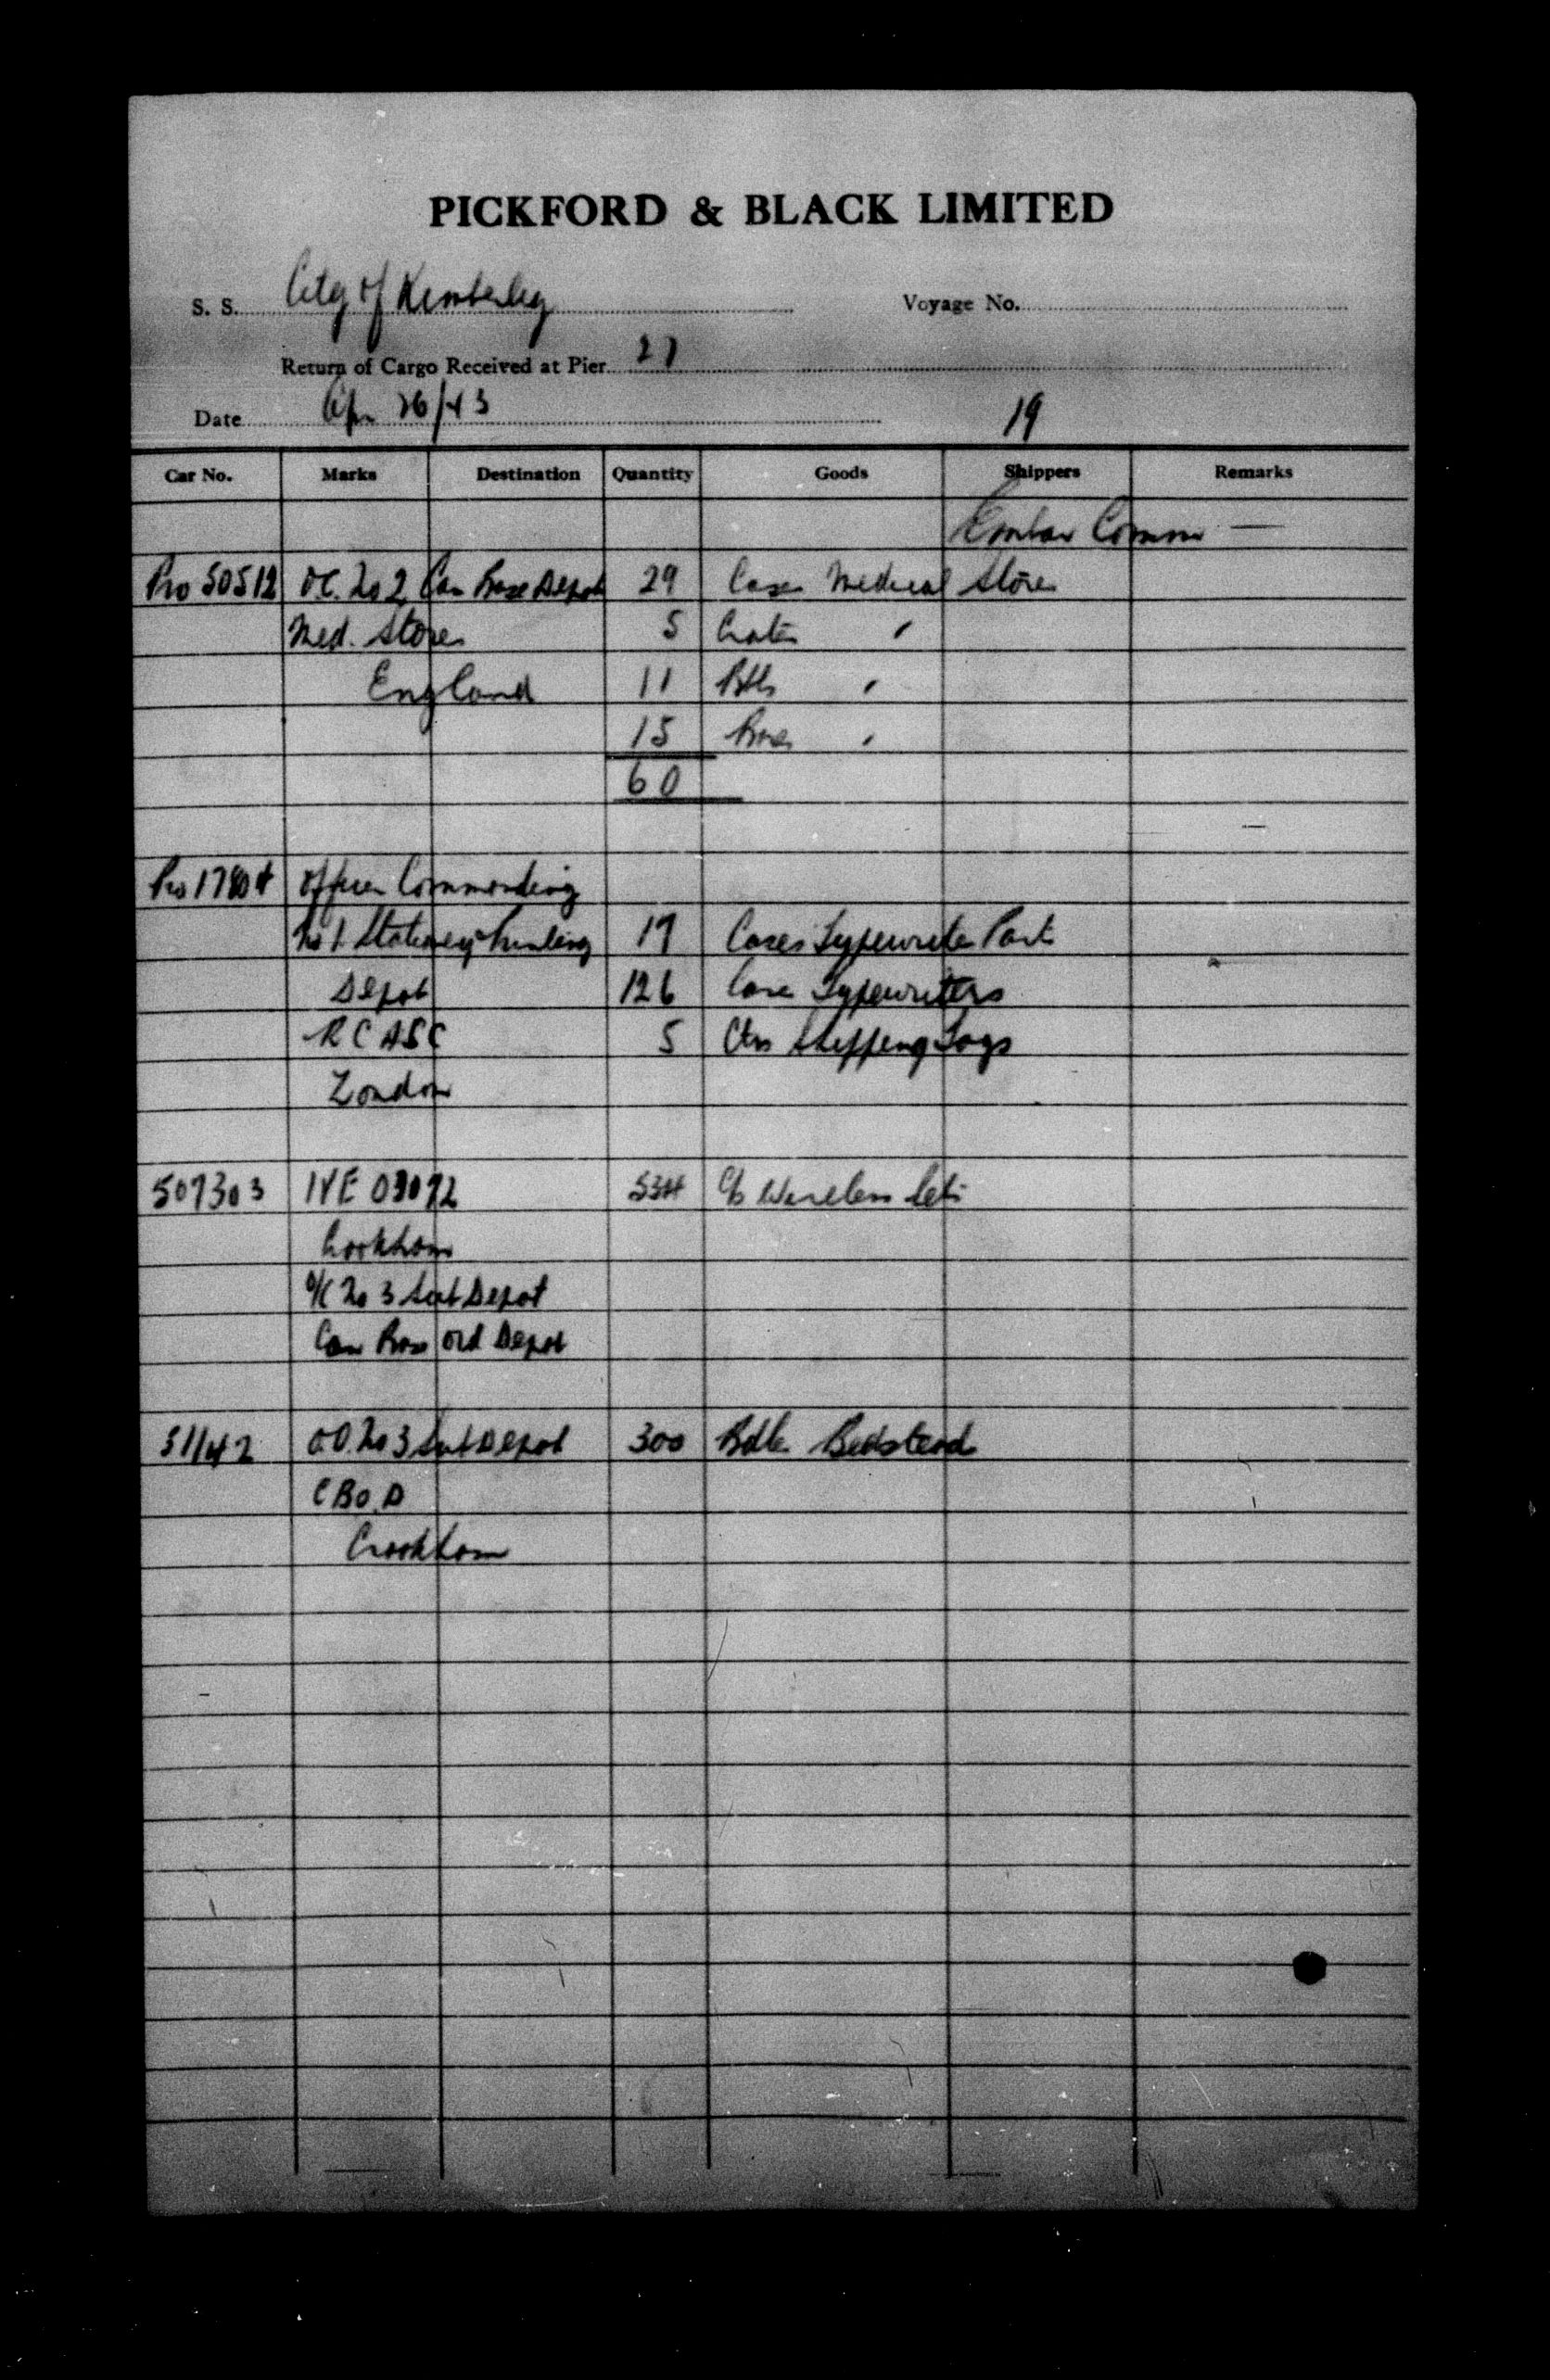 PICKFORD & BLACK LIMITED
S. S. City of Kimberley Voyage No.
Return of Cargo Received at Pier 27
Date Apr 26/43 19
Car No. Marks Destination Quantity Goods Shippers Remarks
Embar Comm —
Pro 50512 O.C. No 2 Can Base Depot 29 Cases Medical Stores
Med. Stores 5 Crates "
England 11 Bdls "
15 Boxes "
60
Officer Commanding
No 1 Stationery Printing Cases Typewriter Parts
Depot 126 Case Typewriters
RCASC 5 Ctns Shipping Tags
London
507303 C/s Wireless Sets
Crookham
O/C No 3 Sub Depot
Can Base Ord Depot
O.O. No 3 Sub Depot 300 Bdls Bedsteads
CBO.D
Crookham